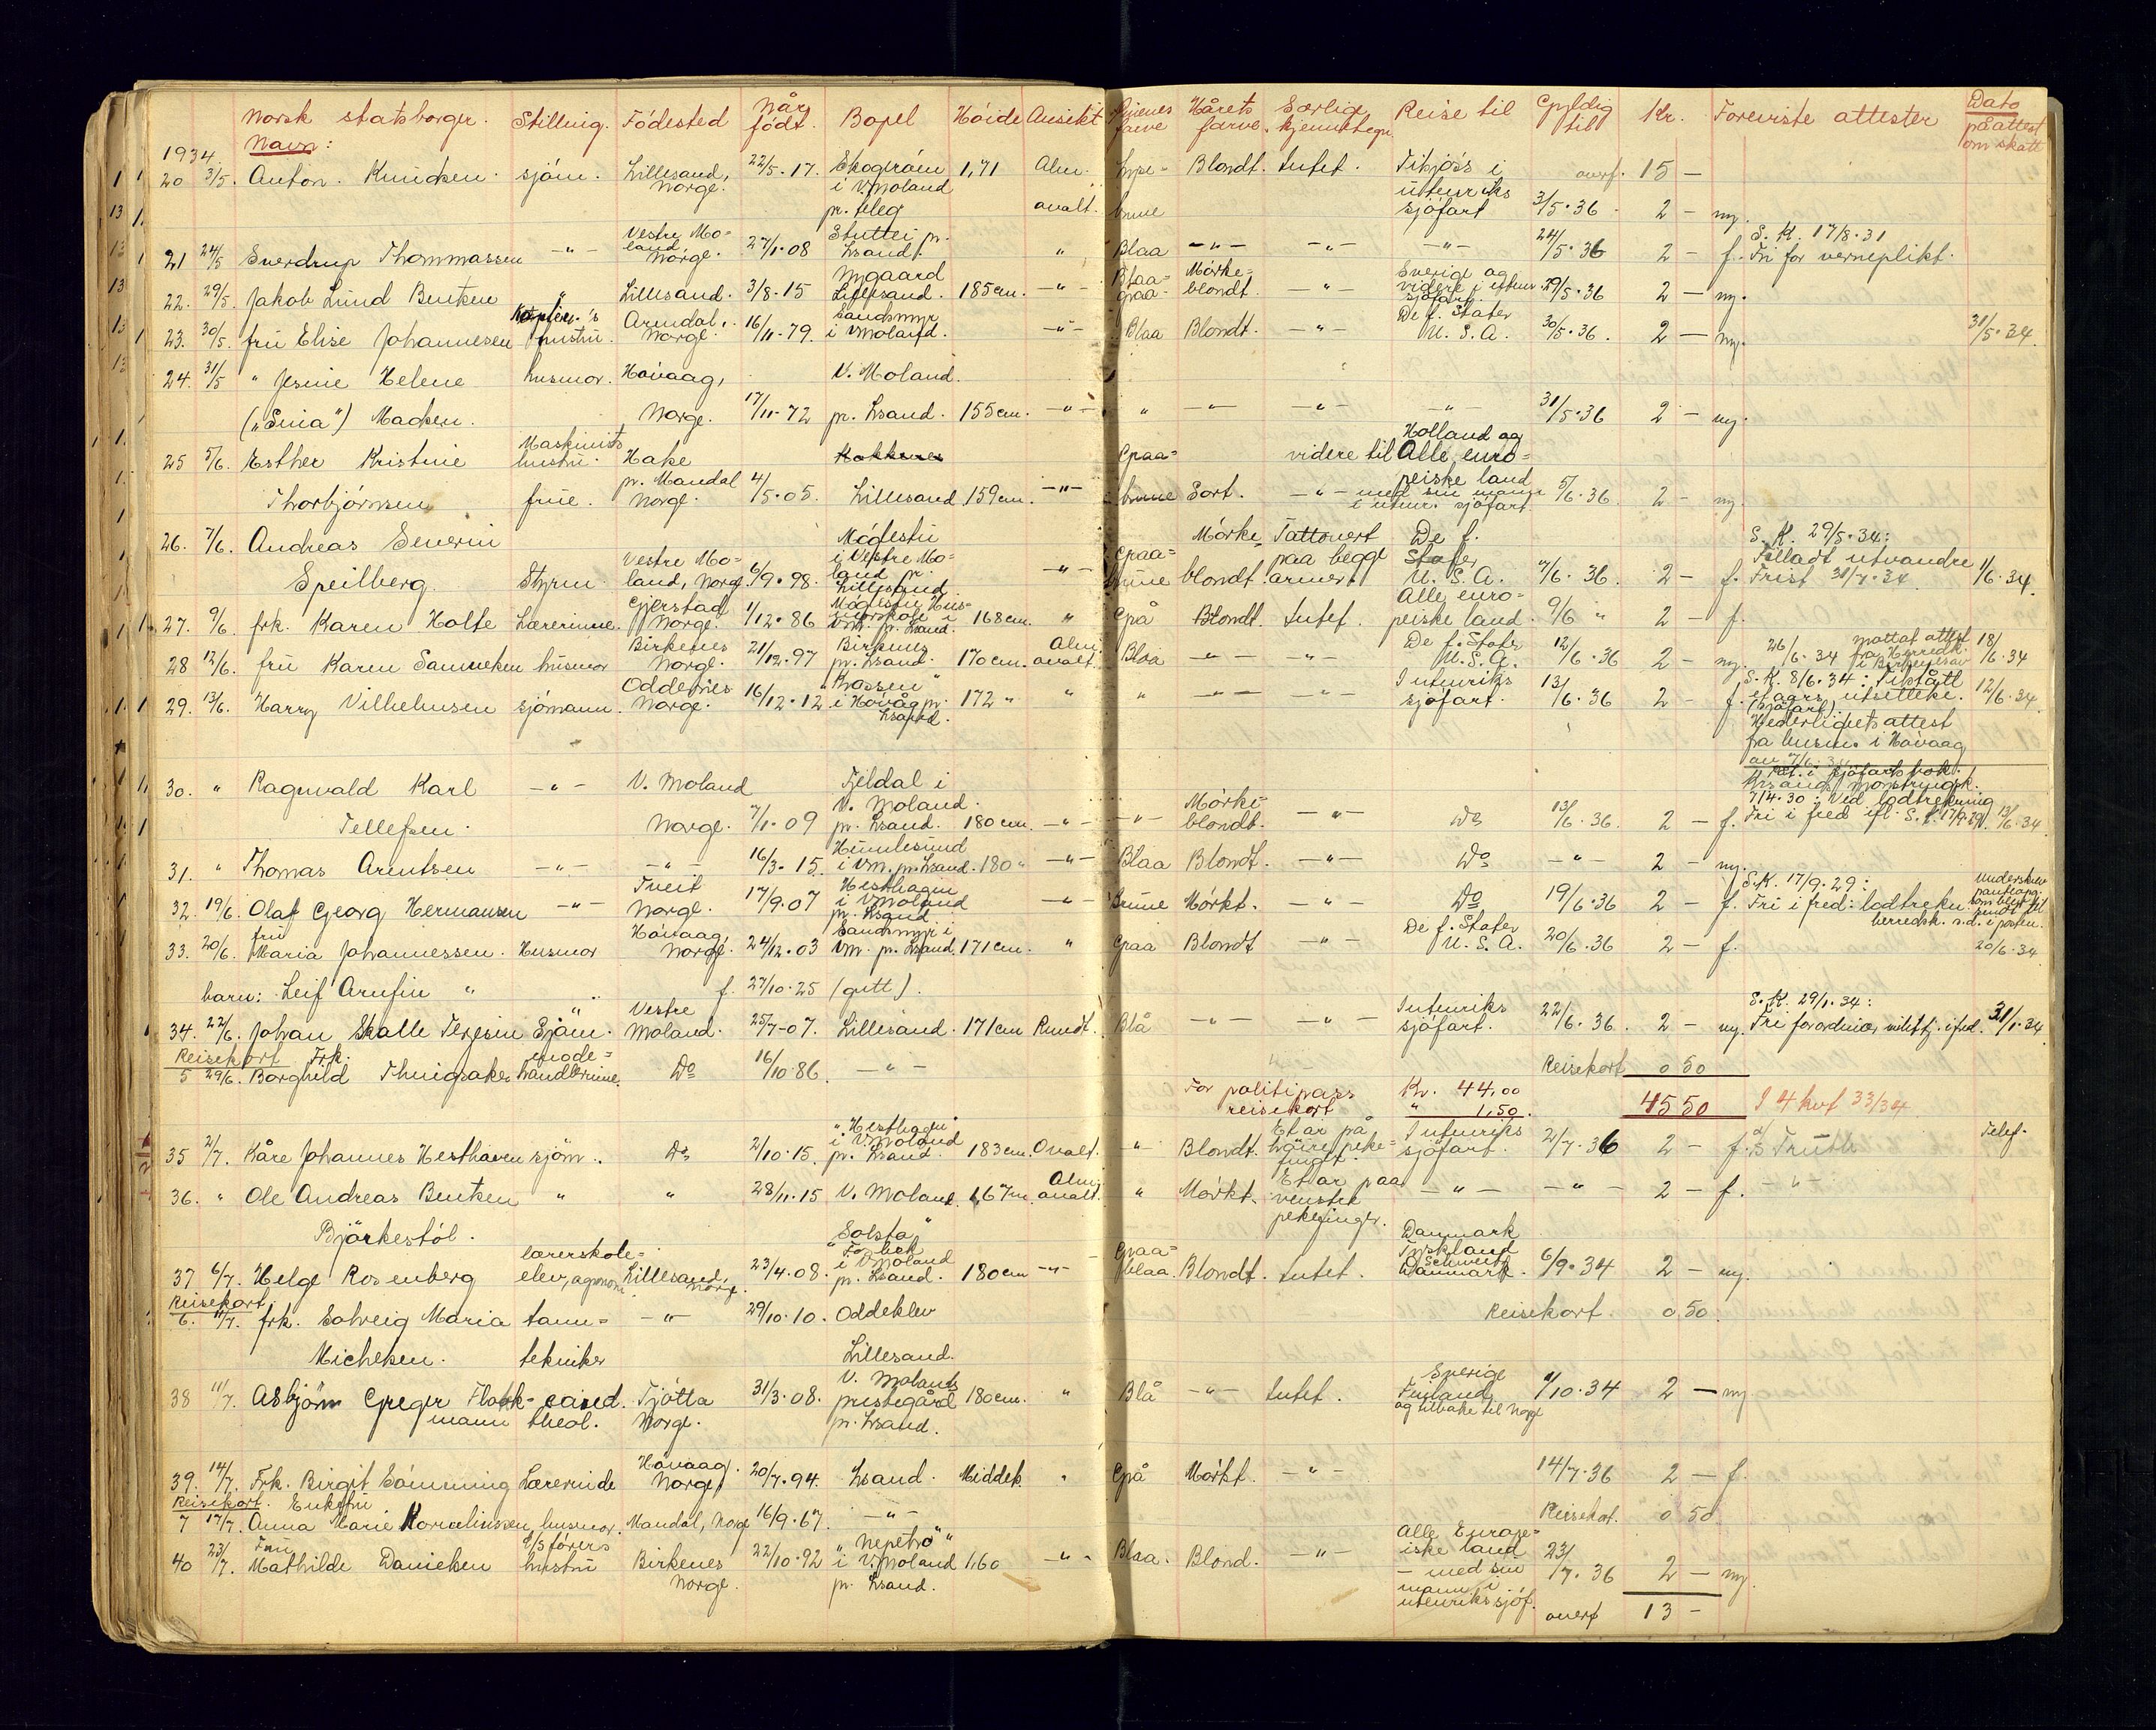 Norsk statsborger. Stilling. Födested Når födt. Bopel Höide Ansikt Öienes farve Hårets farve. Særlige kjennetegn. Reise til Gyldig til Kr. Foreviste attester Dato på attest om skatt
Navn:
1934.
20 3/5. Anton Knudsen sjöm. Lillesand, Norge. 22/5.17. i V. Moland 1,71 Alm. ovalt. brune Blondt. Intet. utenriks sjöfart 3/5.36 overf. 15 —
2 — ny.
21 24/5 Sverdrup Thommassen —"— Vestre Moland, Norge. 27/1.08 pr. Lsand. " Blaa —"— —"— —"— 24/5.36 2 — f. S. R. 17/8.31 Fri for verneplikt.
22. 29/5. Jakob Lund Bentsen " Lillesand. 3/8.15 Nygaard Lillesand. 185 cm. —"— Blaagraa Mörkeblondt. —"— Sverige og videre i utenr. sjöfart. 29/5.36 2 — ny.
23. 30/5. fru Elise Johannesen hustru. Arendal, Norge. 16/11.79. Sandsmyr i V. Moland. —"— Blaa Blondt. —"— De f. Stater U. S. A. 30/5.36. 2 — ny. 31/5.34.
24. 31/5 " Jensine Helene husmor. Hövaag, V. Moland.
Madsen. Norge. 17/11.72 pr. Lsand. 155 cm. —"— " —"— —"— —"— 31/5.36 2 — ny.
25 5/6. Esther Kristine Maskinists hustru. Hake Graa= videre til Holland og Alle euro=
Thorbjörnsen frue. pr. Mandal Norge. 4/5.05. Lillesand 159 cm. —"— brune Sort. —"— peiske land med sin mann i utenr. sjöfart. 5/6.36. 2 — ny.
26. 7/6. Andreas Severin Mörke Tattovert De f. S. R. 29/5.34:
Speilberg. Styrm. Vestre Moland, Norge 6/9.98. i Vestre Moland pr. Lillesand —"— Graa=brune blondt. paa begge armer. Stater U. S. A. 7/6.36. 2 — f. Tilladt utvandre Frist 31/7.34 1/6.34.
27. 9/6. frk. Karen Holte Lærerinne. Gjerstad Norge. 1/12.86 168 cm. " Grå Blondt. Intet. Alle europeiske land. 9/6 " 2 — f.
28 12/6. fru Karen Samuelsen husmor Birkenes Norge. 21/12.97 Birkenes pr. Lsand. 170 cm. Alm. ovalt. Blaa —"— —"— De f. Stater U. S. A. 12/6.36 2 — ny. 26/6.34 mottat attest fra Herredsk. i Birkenes av 18/6.34
29. 13/6. Harry Vilhelmsen sjömann. Oddernes Norge. 16/12.12 "Kossen" i Hövåg pr. Lsand. 172 " " " —"— —"— I utenriks sjöfart. 13/6.36 2 — f. S. R. 8/6.34: Tilstått etaars utsettelse. (Sjöfart). 12/6.34.
Hederlighetsattest
fra lensm. i Hövaag
30. " Ragnvald Karl —"— V. Moland Tjeldal i V. Moland
Tellefsen. Norge. 7/1.09 pr. Lsand. 180 cm. —"— —"— Mörkeblondt. —"— Do 13/6.36. 2 — f. 7/4.30: Ved lodtrekning Fri i fred 13/6.34
31. " Thomas Arentsen —"— —"— 16/3.15. i V.M. pr. Lsand. 180 " —"— Blaa Blondt. —"— Do —"— 2 — ny.
32. 19/6. Olaf Georg Hermansen —"— Tveit Norge. 17/9.07 Hesthagen i V. Moland pr. Lsand. —"— Brune Mörkt. —"— Do 19/6.36 2 — f. S.R. 17/9.29: Fri i fred: lodtrekn.
33. 20/6. fru Maria Johannessen. Husmor Hövaag, Norge. 24/12.03 Sandsmyr i V.M. pr. Lsand. 171 cm. " Graa Blondt —"— De f. Stater U. S. A. 20/6.36 2 — f. 20/6.34
barn: Leif Arnfin " f. 27/10.25 (gutt).
34. 22/6. Johan Skalle Terjesen Sjöm. Vestre Moland. 25/7.07. Lillesand. 171 cm Rundt. Blå —"— —"— I utenriks sjöfart. 22/6.36. 2 — ny. S. R. 29/1.34: 31/1.34
Reisekort Frk.
5 29/6. Borghild Do 16/10.86. —"— Reisekort 0 50
For politipass Kr. 44,00
reisekort " 1,50. 45 50 I 4 kvt 33/34
35 2/7. Kåre Johannes Hesthaven sjöm. Do 2/10.15. "Hesthagen" i V. Moland pr. Lsand. 183 cm. Ovalt. " Blondt. Et ar på höire pekefinger. I utenriks sjöfart. 2/7.36 2 — f. Telef.
36. " Ole Andreas Bentsen " " 28/11.15 V. Moland 167 cm. Alm. ovalt. " Mörkt. Et ar paa venstre pekefinger. —"— —"— 2 — f. —"—
Björkestöl.
37 6/7. Helge Rosenberg lærerskoleelev, agronom Lillesand, Norge. 23/4.08. i V. Moland pr. Lsand. 180 cm —"— Graa=blaa. Blondt. Intet. Danmark Tyskland Schweitz Danmark. 6/9.34 2 — ny.
Reisekort.
6. 11/7. frk. Solveig Maria tann= —"— 29/10.10. Oddeklev Reisekort. 0 50.
Michelsen. tekniker Lillesand.
38 11/7. Asbjörn Greger Flokkmann cand. theol. Tjötta Norge. 31/3.08. V. Molands prestegård pr. Lsand. 180 cm. " Blå —"— Intet. Sverige Finland og tilbake til Norge /10.34 2 — ny.
39. 14/7. Frk. Birgit Lærerinde Hövaag. Norge, 20/7.94. Lsand. Middels. " Grå Mörkt. —"— 14/7.36 2 — f.
Reisekort. Enkefru
7 17/7. Anna Marie husmor. Mandal, Norge 16/9.67. —"— Reisekort. 0 50.
40 23/7. Fru Mathilde Danielsen hustru Birkenes Norge. 22/10.92 i V. Moland pr. Lsand. 1.60 —"— Blaa. Blond. —"— Alle Europeiske land — med sin mann i utenriks sjöf. 23/7.36 2 — ny.
overf 13 —